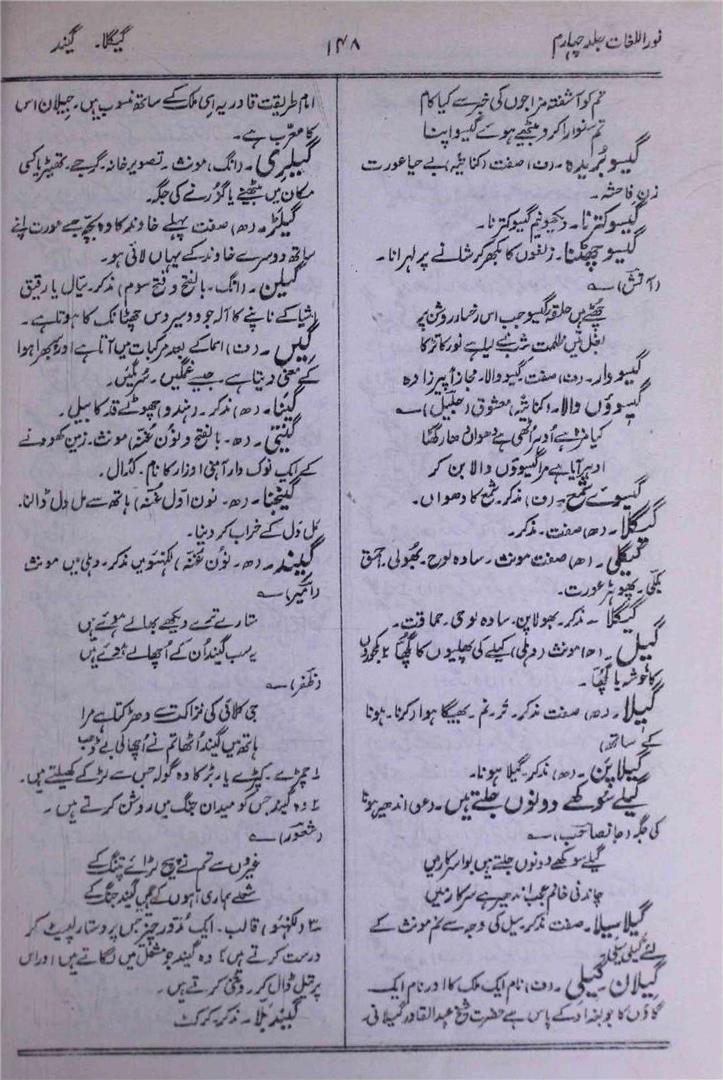 نور اللغات جلد چہارم
۱۴۸
گیگلا۔ گیند
تم کو آشفتہ مزاجوں کی خبر سے کیا کام
تم سنوارا کرو بیٹھے ہوئے گیسو اپنا
گیسو بُریدہ۔ (ف) صفت (کنایۃً) بے حیا عورت
زنِ فاحشہ۔
گیسو کترنا۔ دیکھو نیم گیسو کترنا۔
گیسو چھٹکنا۔ زلفوں کا بکھر کر شانے پر لہرانا۔
(آتش) ؎
چھٹے ہیں حلقہ گیسو جب اس رخسار روشن پر
بغل میں ظلمت شب نے لیا ہے نور کا تڑکا
گیسو دار۔ (ف) صفت۔ گیسو والا۔ مجازاً پیرزادہ
گیسوؤں والا۔ (کنایۃً) معشوق (جلیل) ؎
کیا مزہ ہے اُدہر اُٹھی ہے دھواں دھار گھٹا
ادہر آیا ہے مرا گیسوؤں والا بن کر
گیسوئے شمع۔ (ف) مذکر۔ شمع کا دھواں۔
گیگلا۔ (ھ) صفت۔ مذکر۔
گیگلی۔ (ھ) صفت مونث۔ سادہ لوح۔ بھولی۔ احمق
پگلی۔ پھوہڑ عورت۔
گیگلا۔ مذکر۔ بھولاپن۔ سادہ لوحی۔ حماقت۔
گیل۔ (ھ) مونث (دہلی) کیلے کی پھلیوں کا گچھا ۲ کھجوروں
کا خوشہ یا گچھا۔
گیلا۔ (ھ) صفت مذکر۔ تر۔ نم۔ بھیگا ہوا۔ کرنا۔ ہونا
کے ساتھ)
گیلا پن۔ (ھ) مذکر۔ گیلا ہونا۔
گیلے سوکھے دونوں جلتے ہیں۔ (عو) اندھیر ہونا
کی جگہ (جانصاحب) ؎
گیلے سوکھے دونوں جلتے ہیں بوا سرکار میں
چاندنی خانم عجب اندھیر ہے سرکار میں
گیلا سیلا۔ صفت مذکر۔ سیل کی وجہ سے نم مونث کے
لئے گیلی سیلی۔
گیلان گیلی۔ (ف) نام ایک ملک کا اور نام ایک
گاؤں کا جو بغداد کے پاس ہے حضرت شیخ عبدالقادر گیلانی۔
امام طریقت قادریہ اسی ملک کے ساتھ منسوب ہیں۔ جیلان اس
کا معرّب ہے۔
گیلری۔ (انگ) مونث۔ تصویر خانہ۔ گرجے۔ تھیٹر یا کسی
مکان میں بیٹھنے یا گزرنے کی جگہ۔
گیلڑ۔ (ھ) صفت پہلے خاوند کا وہ بچّہ جسے عورت اپنے
ساتھ دوسرے خاوند کے یہاں لائی ہو۔
گیلن۔ (انگ۔ بالفتح و فتح سوم) مذکر۔ سیال یا رقیق
اشیا کے ناپنے کا آلہ جو دوسیر دس چھٹانک کا ہوتا ہے۔
گیں۔ (ف) اسما کے بعد مرکبات میں آتا ہے اور بھرا ہوا
کے معنی دیتا ہے۔ جیسے غمگیں۔ شرمگیں۔
گینا۔ (ھ) مذکر۔ (ہندو) چھوٹے قد کا بیل۔
گینتی۔ (ھ۔ بالفتح و نون غنّہ) مونث۔ زمین کھودنے
کے ایک نوک دار آہنی اوزار کا نام۔ کدال۔
گینجنا۔ (ھ۔ نون اول غنّہ) ہاتھ سے مل دل ڈالنا۔
مل دل کے خراب کر دینا۔
گیند۔ (ھ۔ نون غنّہ) لکھنؤ میں مذکر۔ دہلی میں مونث
(امیر) ؎
ستارے ترے دیکھے بھالے ہوئے ہیں
یہ سب گیند اُن کے اُچھالے ہوئے ہیں
(ظفر) ؎
جی کلائی کی نزاکت سے دھڑکتا ہے مرا
ہاتھ میں گیند اُٹھا تم نے اُچھالی بے ڈھب
۱ چمڑے۔ کپڑے یا ربڑ کا وہ گولہ جس سے لڑکے کھیلتے ہیں۔
۲ وہ گیند جس کو میدان جنگ میں روشن کرتے ہیں۔
(شعور) ؎
غیروں سے تم نے پیچ لڑائے پتنگ کے
شعلے ہماری آہوں کے ہیں گیند جنگ کے
۳ (لکھنؤ) قالب۔ ایک مُدوّر چیز جس پر دستار لپیٹ کر
درست کرتے ہیں ۴ وہ گیند جو مشعل میں لگاتے ہیں اور اس
پر تیل ڈال کر روشن کرتے ہیں۔
گیند بلّا۔ مذکر۔ کرکٹ